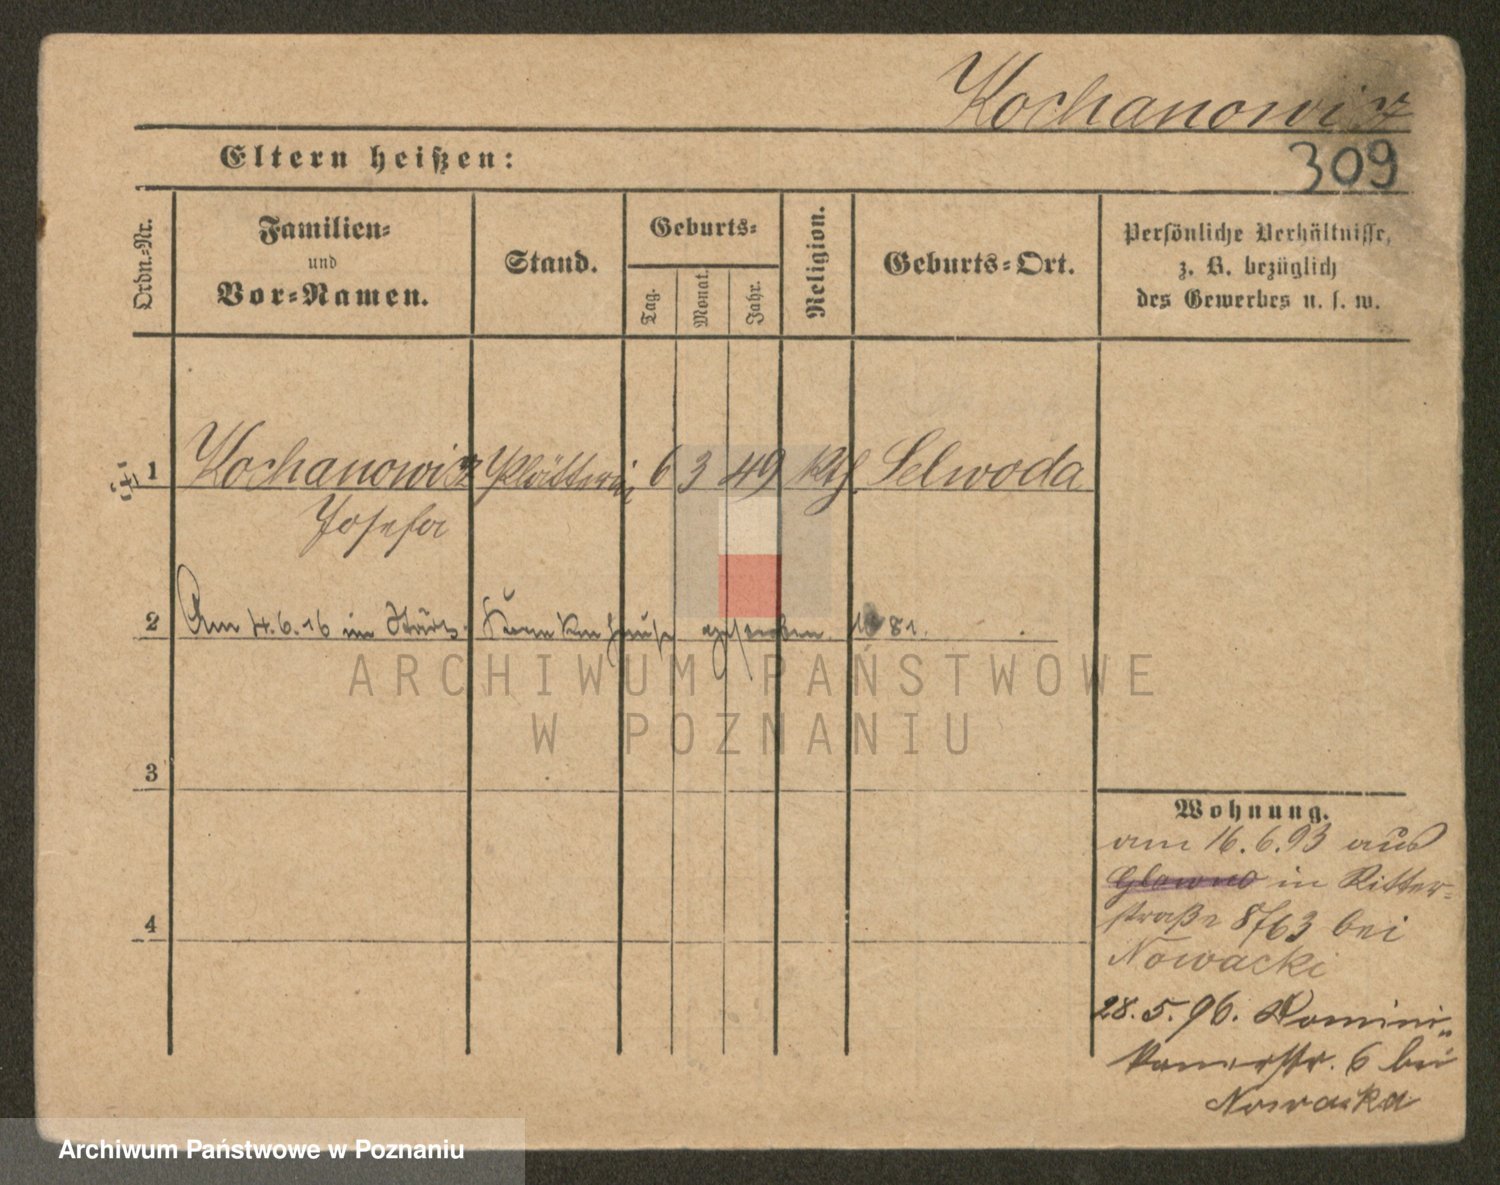 Kochanowicz
309
Eltern heißen:
Ordn.=Nr.
Familien=
und
Vor=Namen.
Stand.
Geburts=
Tag.
Monat.
Jahr.
Religion.
Geburts=Ort.
Persönliche Verhältnisse,
z. B. bezüglich
des Gewerbes u. s. w.
1 Kochanowicz Plätterin 6 3 49 Kth. Selwoda
Josefa
2 Am 4.6.16 im städt. Krankenhause gestorben. 81.
ARCHIWUM PAŃSTWOWE
W POZNANIU
3
4
Wohnung.
am 16.6.93 aus
Glowno in Ritter=
straße 8/63 bei
Nowacki
28.5.96. Domini=
kanerstr. 6 bei
Nowacka
Archiwum Państwowe w Poznaniu